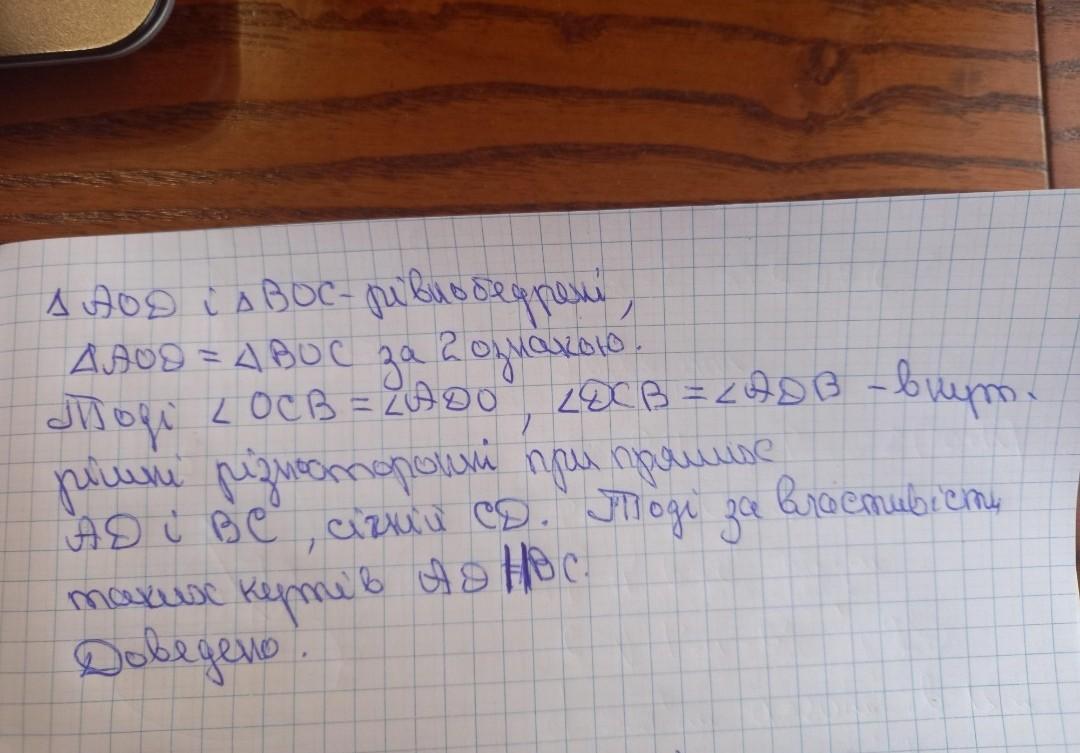 Δ AOD і Δ BOC - рівнобедрені,
ΔAOD = ΔBOC за 2 ознакою.
Тоді ∠ OCB = ∠ADO, ∠DCB = ∠ADB - внут.
рішні різносторонні при прямих
AD і BC, січній CD. Тоді за властивість
таких кутів AD || BC.
Доведено.